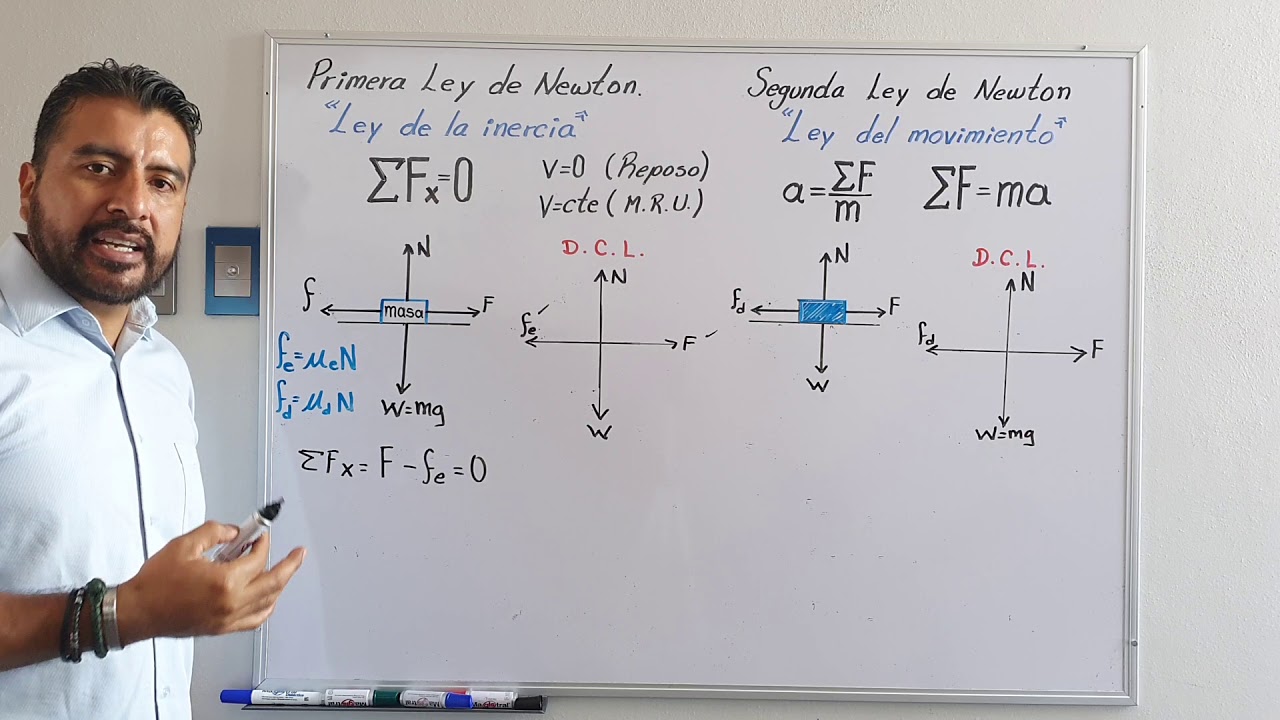 Primera Ley de Newton.
"Ley de la inercia"
ΣFx=0
V=0 (Reposo)
V=cte (M.R.U.)
N
f
masa
F
fe=μeN
fd=μdN
W=mg
D.C.L.
N
fe
F
W
ΣFx = F - fe = 0
Segunda Ley de Newton
"Ley del movimiento"
a=ΣF/m
ΣF=ma
N
fd
F
W
D.C.L.
N
fd
F
W=mg